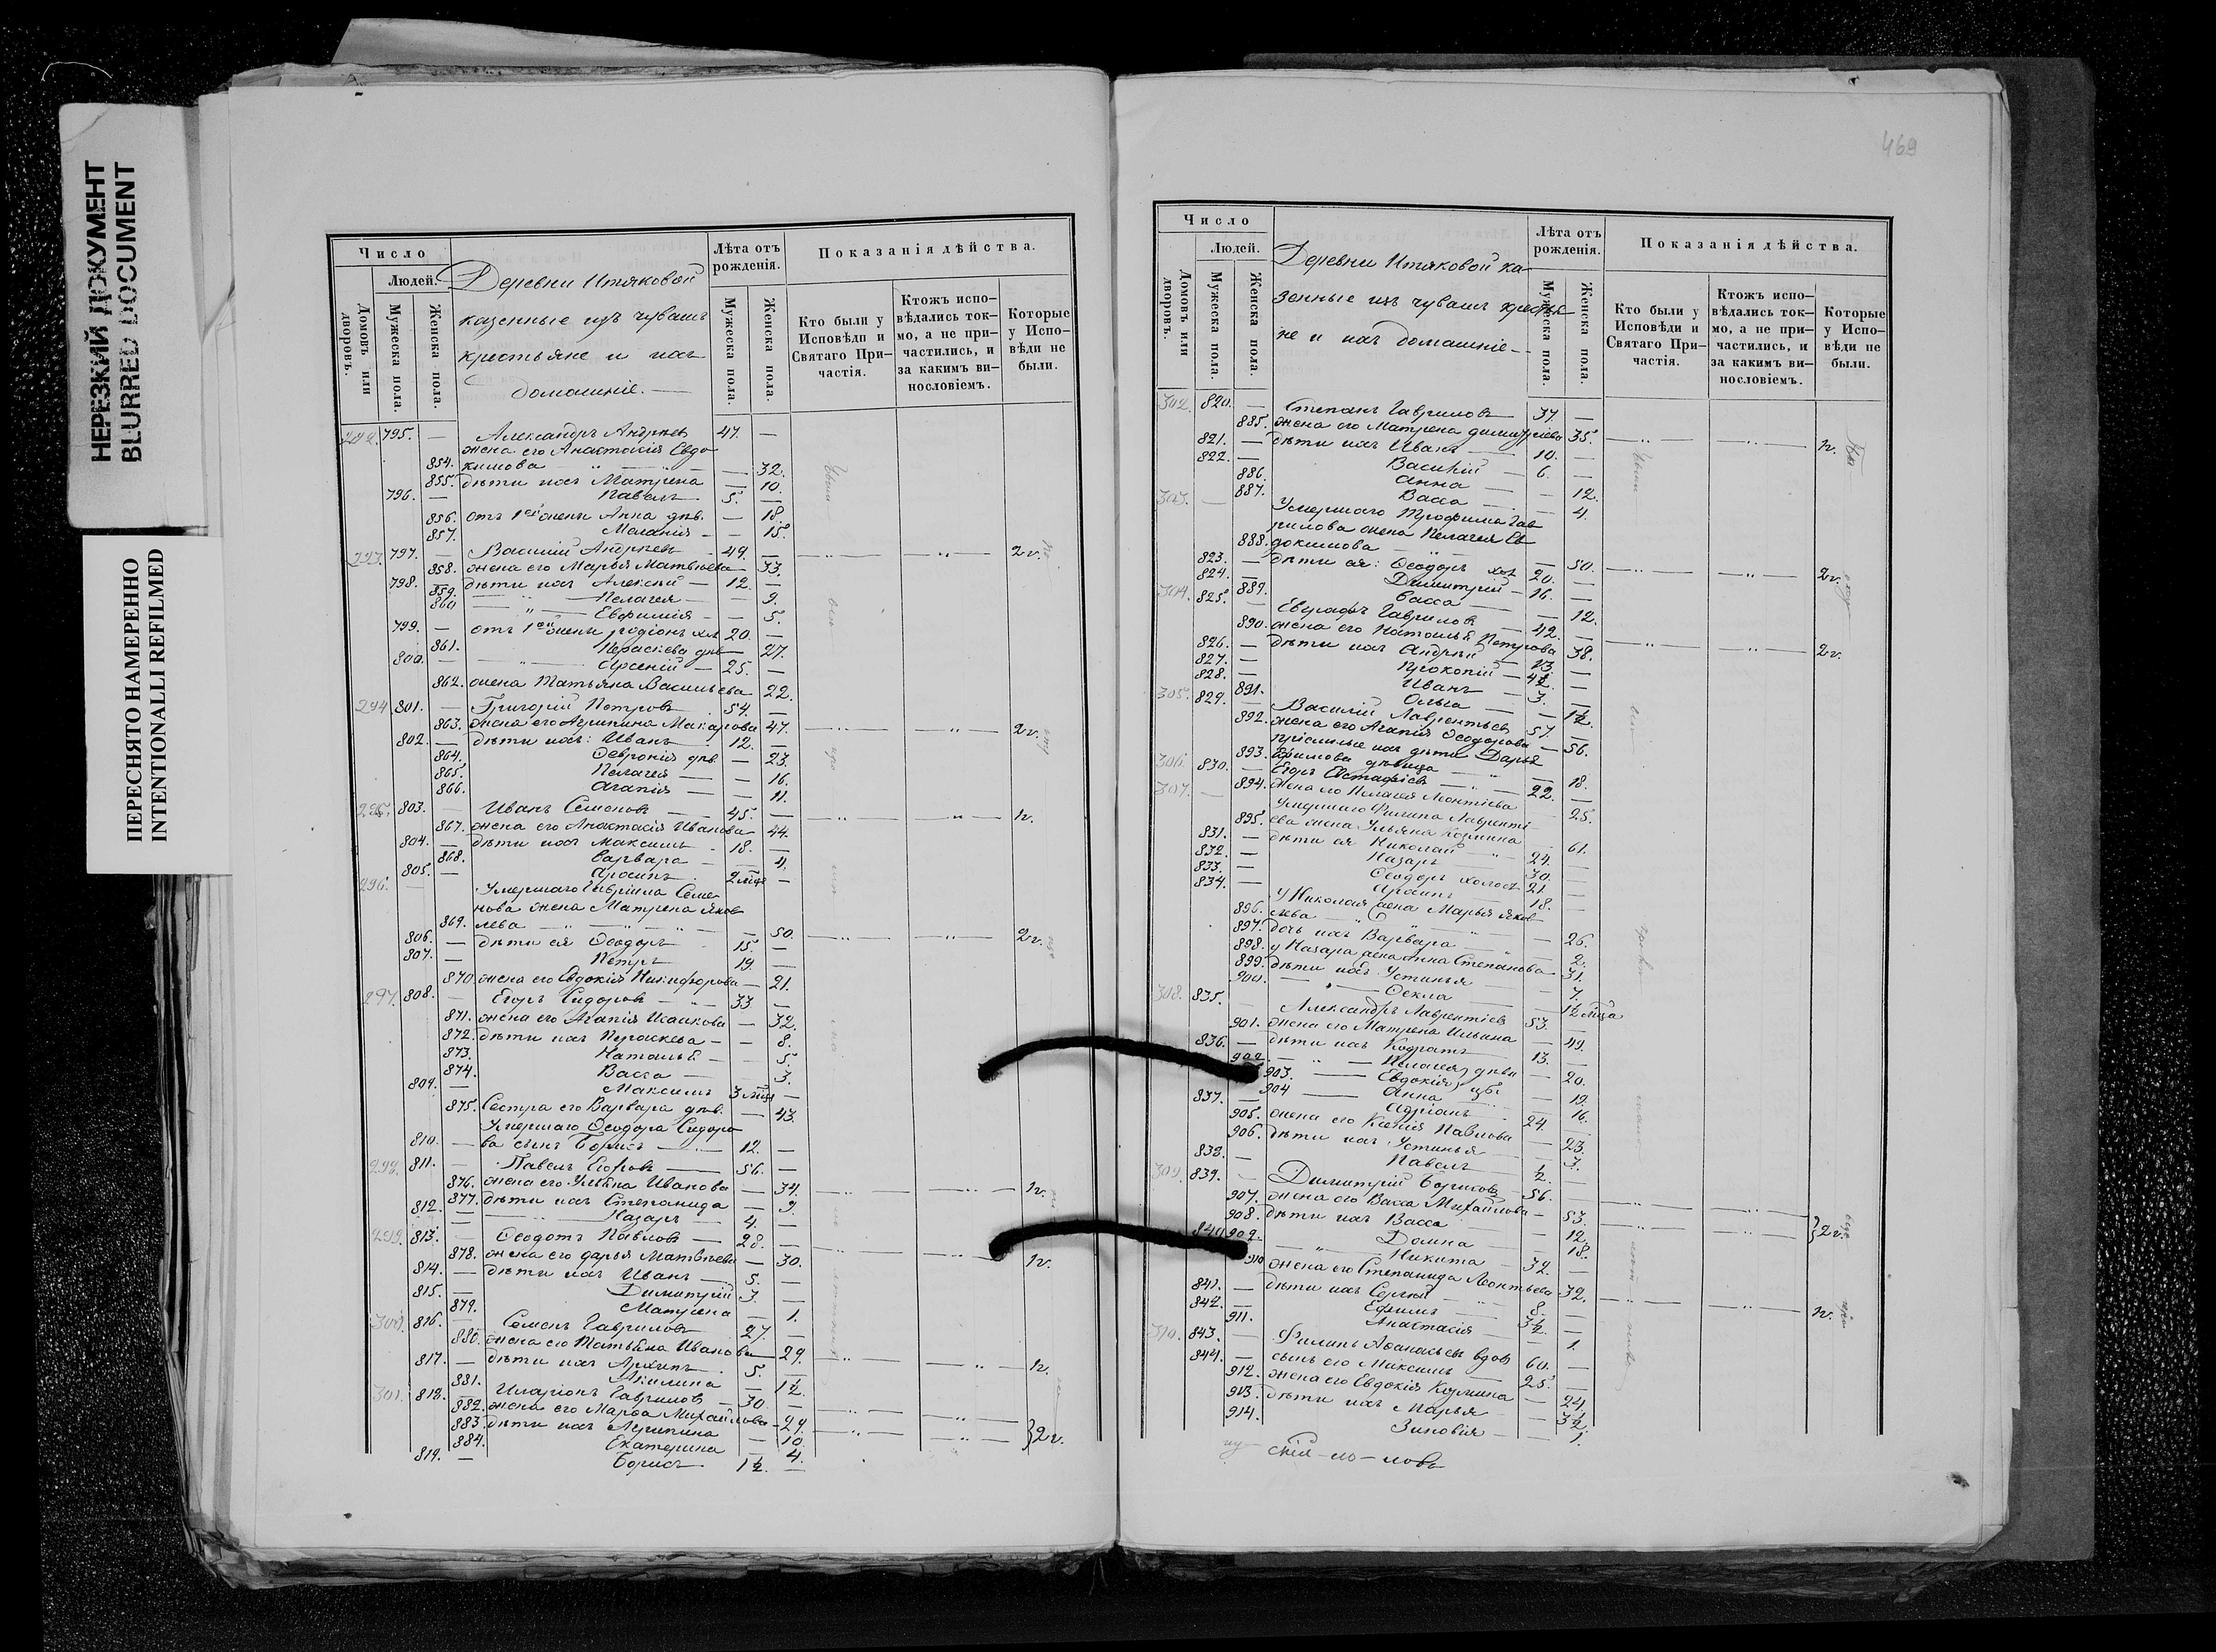 НЕРЕЗКИЙ ДОКУМЕНТ
BLURRED DOCUMENT
ПЕРЕСНЯТО НАМЕРЕННО
INTENTIONALLI REFILMED
Число
Людей.
Домовъ или дворовъ.
Мужеска пола.
Женска пола.
Деревни Итяковой
казенные изъ чувашъ
крестьяне и ихъ
домашніе.
Лѣта отъ рожденія.
Мужеска пола.
Женска пола.
Показанія дѣйства.
Кто были у Исповѣди и Святаго Причастія.
Ктожъ исповѣдались токмо, а не причастились, и за какимъ винословіемъ.
Которые у Исповѣди не были.
292. 795. — Александръ Андреевъ 47. —
жена его Анастасія Евдо
854. кимова — 32.
855. дѣти ихъ Матрена — 10.
796. — Павелъ 5. —
856. отъ 1ой жены Анна дѣв. — 18.
857. Маланія — 15.
293. 797. — Василій Андреевъ 49. — 2 г.
858. жена его Марья Матвѣева 33.
798. — дѣти ихъ Алексѣй — 12. —
859. Пелагея — 9.
860 Евфимія — 5.
799. — отъ 1ой жены Родіонъ хол 20. —
861. Параскева дѣв — 27.
800. — Арсеній — 25. —
862. жена Татьяна Васильева 22.
294 801. — Григорій Петровъ 54. —
863. жена его Агрипина Макарова 47. 2 г.
802. — дѣти ихъ: Иванъ 12. —
864. Февронія дѣв. — 23.
865. Пелагея — 16.
866. Агапія — 11.
295. 803. — Иванъ Семеновъ 45. —
867. жена его Анастасія Иванова 44. 1 г.
804. — дѣти ихъ Максимъ 18. —
868. Варвара — 4.
805. — 2 мца —
296. — Умершаго Гавріила Семе
нова жена Матрена Яков
869. лева — 50.
806. — дѣти ея Ѳеодоръ 15. — 2 г.
807. — Петръ 19. —
870. жена его Евдокія Никифорова — 21.
297. 808. — Егоръ Сидоровъ 33 —
871. жена его Агапія Исаикова — 32.
872. дѣти ихъ Параскева — 8.
873. Наталья — 5.
874. Васса — 3.
809. — Максимъ 3 мца —
875. Сестра его Варвара дѣв. — 43.
Умершаго Ѳеодора Сидоро
810. — ва сынъ Борисъ 12. —
298. 811. — Павелъ Егоровъ 56. —
876. жена его Ульяна Иванова — 34. 1 г.
877. дѣти ихъ Степанида — 9.
812. — Назаръ 4. —
299. 813. — Ѳеодотъ Павловъ 28. —
878. жена его Дарья Матвѣева — 30. 1 г.
814. — дѣти ихъ Иванъ 5. —
815. — Димитрій 3. —
879. Матрена — 1.
300. 816. — Семенъ Гавриловъ 27. —
880. жена его Татьяна Иванова 29.
817. — дѣти ихъ Архипъ 5. — 1 г.
881. Акилина — 1½.
301. 818. Иларіонъ Гавриловъ — 30. —
882. жена его Марѳа Михайлова — 29.
883. дѣти ихъ Агрипина — 10. 2 г.
884. Екатерина — 4.
819. — Борисъ 1½. —
469
Число
Людей.
Домовъ или дворовъ.
Мужеска пола.
Женска пола.
Деревни Итяковой ка-
зенные изъ чувашъ крестья
не и ихъ домашніе—
Лѣта отъ рожденія.
Мужеска пола.
Женска пола.
Показанія дѣйства.
Кто были у Исповѣди и Святаго Причастія.
Ктожъ исповѣдались токмо, а не причастились, и за какимъ винословіемъ.
Которые у Исповѣди не были.
302. 820. — Степанъ Гавриловъ 37. —
885. жена его Матрена Димитріева 35. 1 г.
821. — дѣти ихъ Иванъ 10. —
822. — Василій 6. —
886. Анна — 12.
887. Васса — 4.
303. — Умершаго Трофима Гав
рилова жена Пелагея Ев
888. докимова — 50.
823. — дѣти ея: Ѳеодоръ хол 20. — 2 г.
824. — Димитрій — 16. —
889. Васса — 12.
304. 825. — Евграфъ Гавриловъ 42. —
890. жена его Наталья Петрова 38. 2 г.
826. — дѣти ихъ Андрей 13. —
827. — Прокопій —
828. — Иванъ 3. —
891. Ольга — 1½.
305. 829. — Василій Лаврентьевъ 57. —
892. жена его Агапія Ѳеодорова — 56.
пріемные ихъ дѣти Дарья
893. Ефимова дѣвица — 18.
306. 830. — Егоръ Евстафіевъ 22. —
894. жена его Пелагея Леонтіева 25.
307. — Умершаго Филипа Лавренті
895. ева жена Ульяна Козмина 61.
831. — дѣти ея Николай 24. —
832. — Назаръ 30. —
833. — Ѳеодоръ холост 21. —
834. — 18. —
у Николая жена Марья Яков
896. лева — 26.
897. дочь ихъ Варвара — 2.
898. у Назара жена Анна Степанова 31.
899. дѣти ихъ Устинья — 7.
900. Ѳекла — 1½ мца
308. 835. — Александръ Лаврентіевъ 53. —
901. жена его Матрена Ильина — 49.
836. — дѣти ихъ Кодратъ 13. —
902. Пелагея дѣви — 20.
903. Евдокія цы — 19.
904 Анна — 16.
837. — Адріанъ 24. —
905. жена его Ксенія Павлова — 23.
906. дѣти ихъ Устинья — 3.
838. — Павелъ ½. —
309. 839. — Димитрій Борисовъ 56. —
907. жена его Васса Михайлова — 53.
908. дѣти ихъ Васса — 12.
909. Домна — 18. 2 г.
840 Никита 32. —
910 жена его Степанида Леонтьева 32.
841. — дѣти ихъ Сергѣй 8. — 1 г.
842. — Ефимъ 3½. —
911. Анастасія — 1.
310. 843. — Филипъ Аѳанасьевъ вдов 60. —
844. — сынъ его Максимъ 25. —
912. жена его Евдокія Козмина — 24.
913. дѣти ихъ Марья — 3½.
914. Зиновія — 1.
скія—ло—ловъ